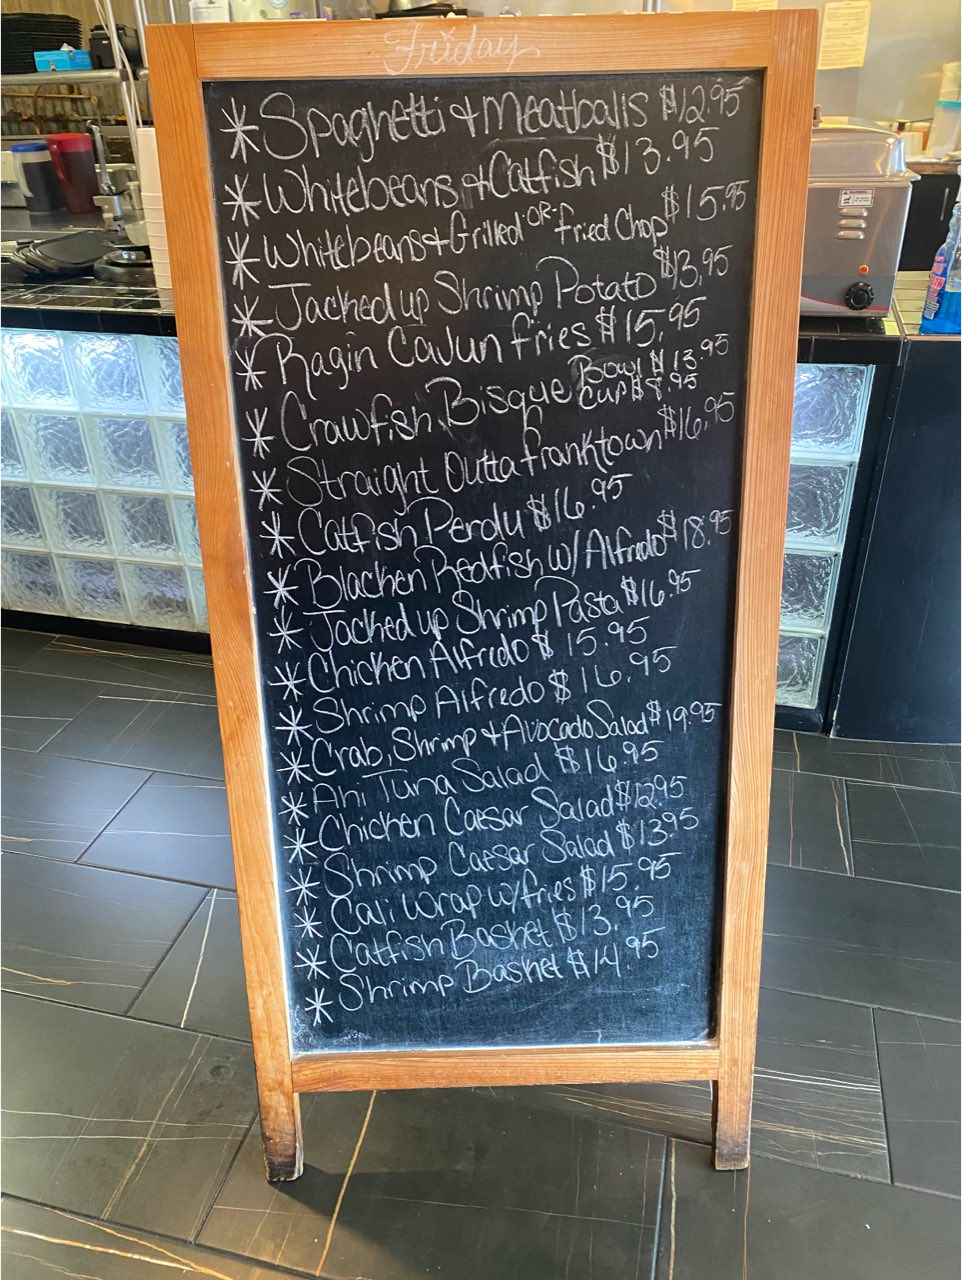 Friday
* Spaghetti & Meatballs $12.95
* Whitebeans & Catfish $13.95
* Whitebeans & Grilled OR Fried Chop $15.95
* Jacked up Shrimp Potato $13.95
* Ragin Cajun Fries $15.95
* Crawfish Bisque Bowl $13.95
Cup $8.95
* Straight Outta Franktown $16.95
* Catfish Perdu $16.95
* Blacken Redfish w/ Alfredo $18.95
* Jacked up Shrimp Pasta $16.95
* Chicken Alfredo $15.95
* Shrimp Alfredo $16.95
* Crab, Shrimp & Avocado Salad $19.95
* Ahi Tuna Salad $16.95
* Chicken Caesar Salad $12.95
* Shrimp Caesar Salad $13.95
* Cali Wrap w/fries $15.95
* Catfish Basket $13.95
* Shrimp Basket $14.95